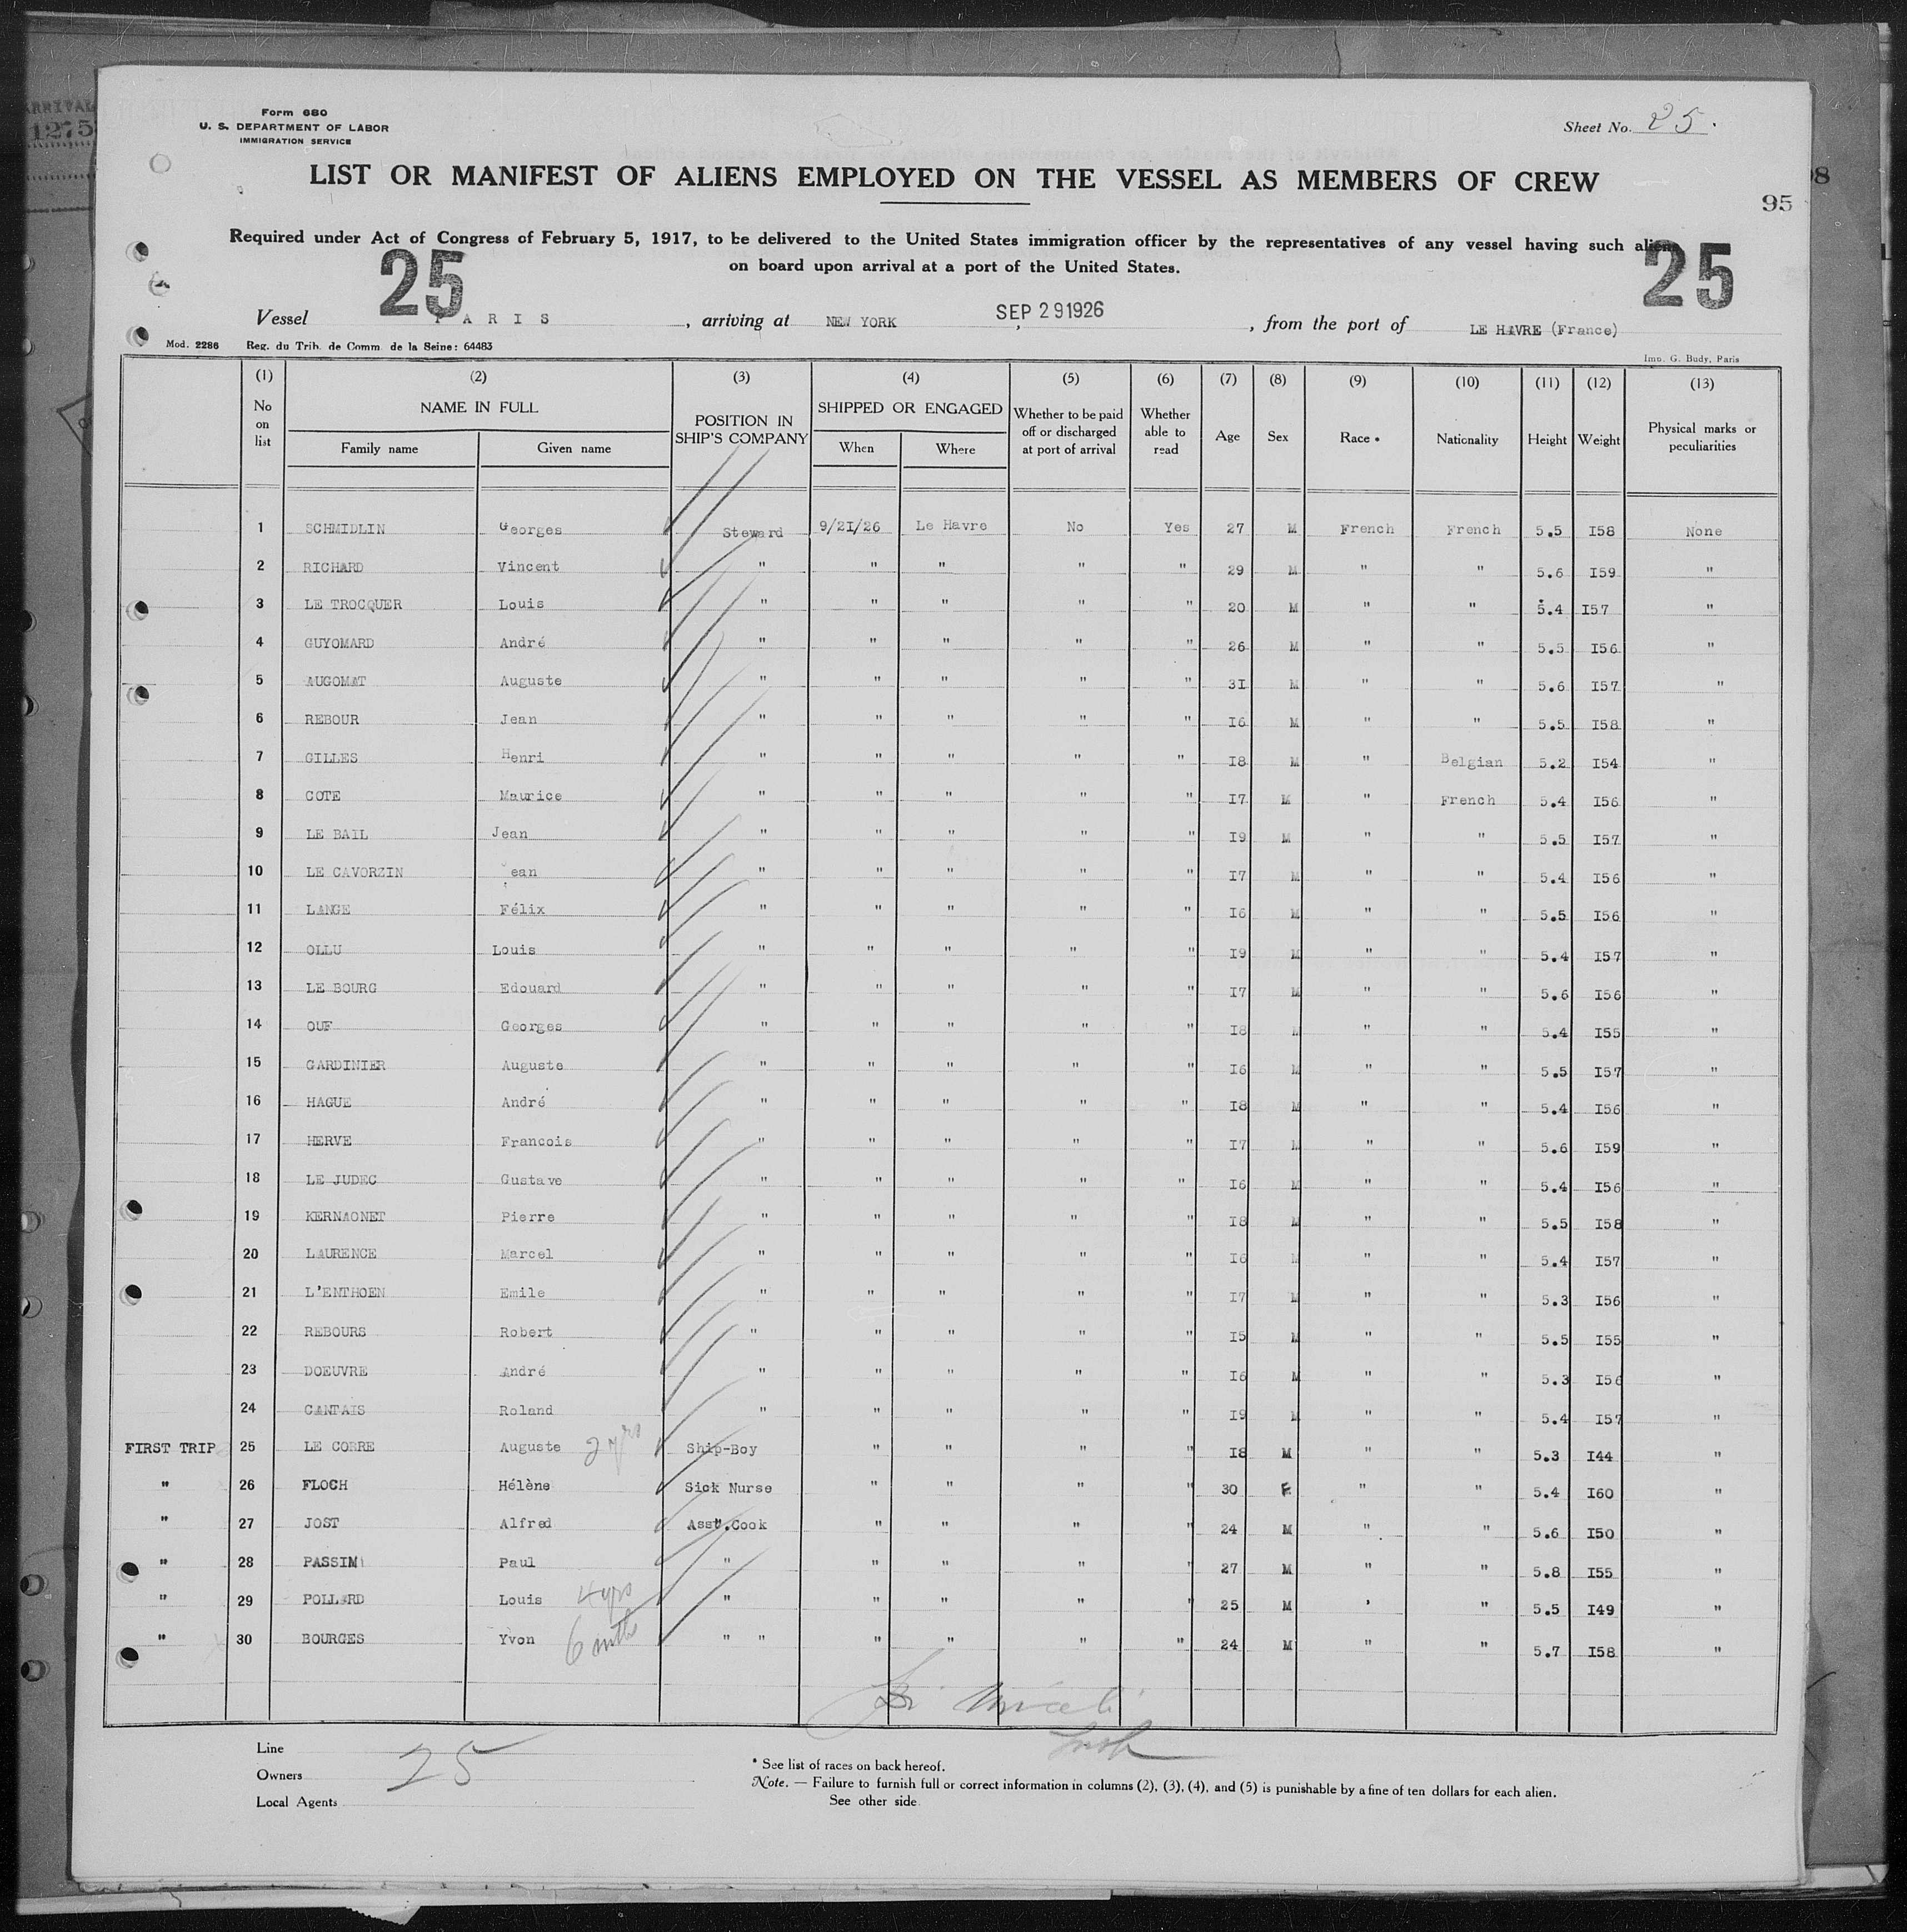 ARRIVAL
1275
Form 680
U. S. DEPARTMENT OF LABOR
IMMIGRATION SERVICE
Sheet No. 25.
LIST OR MANIFEST OF ALIENS EMPLOYED ON THE VESSEL AS MEMBERS OF CREW
98
95
Required under Act of Congress of February 5, 1917, to be delivered to the United States immigration officer by the representatives of any vessel having such aliens
on board upon arrival at a port of the United States.
25 25
Vessel PARIS, arriving at NEW YORK, SEP 29 1926, from the port of LE HAVRE (France)
Mod. 2286 Reg. du Trib. de Comm. de la Seine: 64483 Imp. G. Budy, Paris
(1) (2) (3) (4) (5) (6) (7) (8) (9) (10) (11) (12) (13)
No on list NAME IN FULL Family name Given name POSITION IN SHIP'S COMPANY SHIPPED OR ENGAGED When Where Whether to be paid off or discharged at port of arrival Whether able to read Age Sex Race * Nationality Height Weight Physical marks or peculiarities
1 SCHMIDLIN Georges Steward 9/2I/26 Le Havre No Yes 27 M French French 5.5 I58 None
2 RICHARD Vincent " " " " " 29 M " " 5.6 I59 "
3 LE TROCQUER Louis " " " " " 20 M " " 5.4 I57 "
4 GUYOMARD André " " " " " 26 M " " 5.5 I56 "
5 AUGOMAT Auguste " " " " " 3I M " " 5.6 I57 "
6 REBOUR Jean " " " " " I6 M " " 5.5 I58 "
7 GILLES Henri " " " " " I8 M " Belgian 5.2 I54 "
8 COTE Maurice " " " " " I7 M " French 5.4 I56 "
9 LE BAIL Jean " " " " " I9 M " " 5.5 I57 "
10 LE CAVORZIN ean " " " " " I7 M " " 5.4 I56 "
11 LANGE Félix " " " " " I6 M " " 5.5 I56 "
12 OLLU Louis " " " " " I9 M " " 5.4 I57 "
13 LE BOURG Edouard " " " " " I7 M " " 5.6 I56 "
14 OUF Georges " " " " " I8 M " " 5.4 I55 "
15 GARDINIER Auguste " " " " " I6 M " " 5.5 I57 "
16 HAGUE André " " " " " I8 M " " 5.4 I56 "
17 HERVE Francois " " " " " I7 M " " 5.6 I59 "
18 LE JUDEC Gustave " " " " " I6 M " " 5.4 I56 "
19 KERNAONET Pierre " " " " " I8 M " " 5.5 I58 "
20 LAURENCE Marcel " " " " " I6 M " " 5.4 I57 "
21 L'ENTHOEN Emile " " " " " I7 M " " 5.3 I56 "
22 REBOURS Robert " " " " " I5 M " " 5.5 I55 "
23 DOEUVRE André " " " " " I6 M " " 5.3 I56 "
24 CANTAIS Roland " " " " " I9 M " " 5.4 I57 "
FIRST TRIP 25 LE CORRE Auguste 2 yrs Ship-Boy " " " " I8 M " " 5.3 I44 "
" 26 FLOCH Hélène Sick Nurse " " " " 30 F " " 5.4 I60 "
" 27 JOST Alfred Asst.Cook " " " " 24 M " " 5.6 I50 "
" 28 PASSIM Paul " " " " " 27 M " " 5.8 I55 "
" 29 POLLARD Louis 4 yrs " " " " " 25 M ' " 5.5 I49 "
" 30 BOURGES Yvon 6 mths " " " " " " 24 M " " 5.7 I58 "
Line
Owners 25
Local Agents
* See list of races on back hereof.
Note. — Failure to furnish full or correct information in columns (2), (3), (4), and (5) is punishable by a fine of ten dollars for each alien.
See other side.